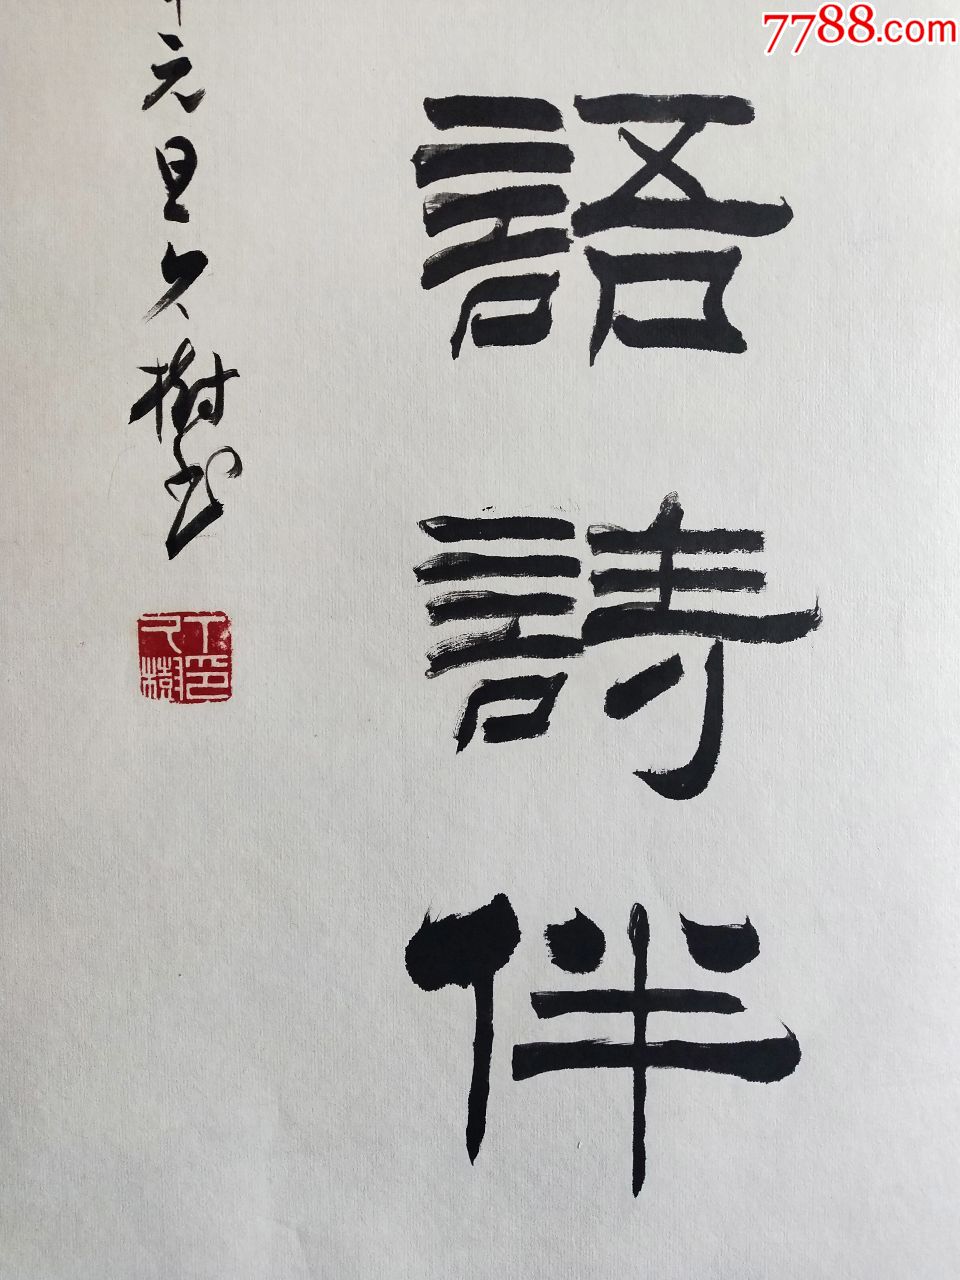 7788.com
語詩伴
元旦久樹书
丁印久樹